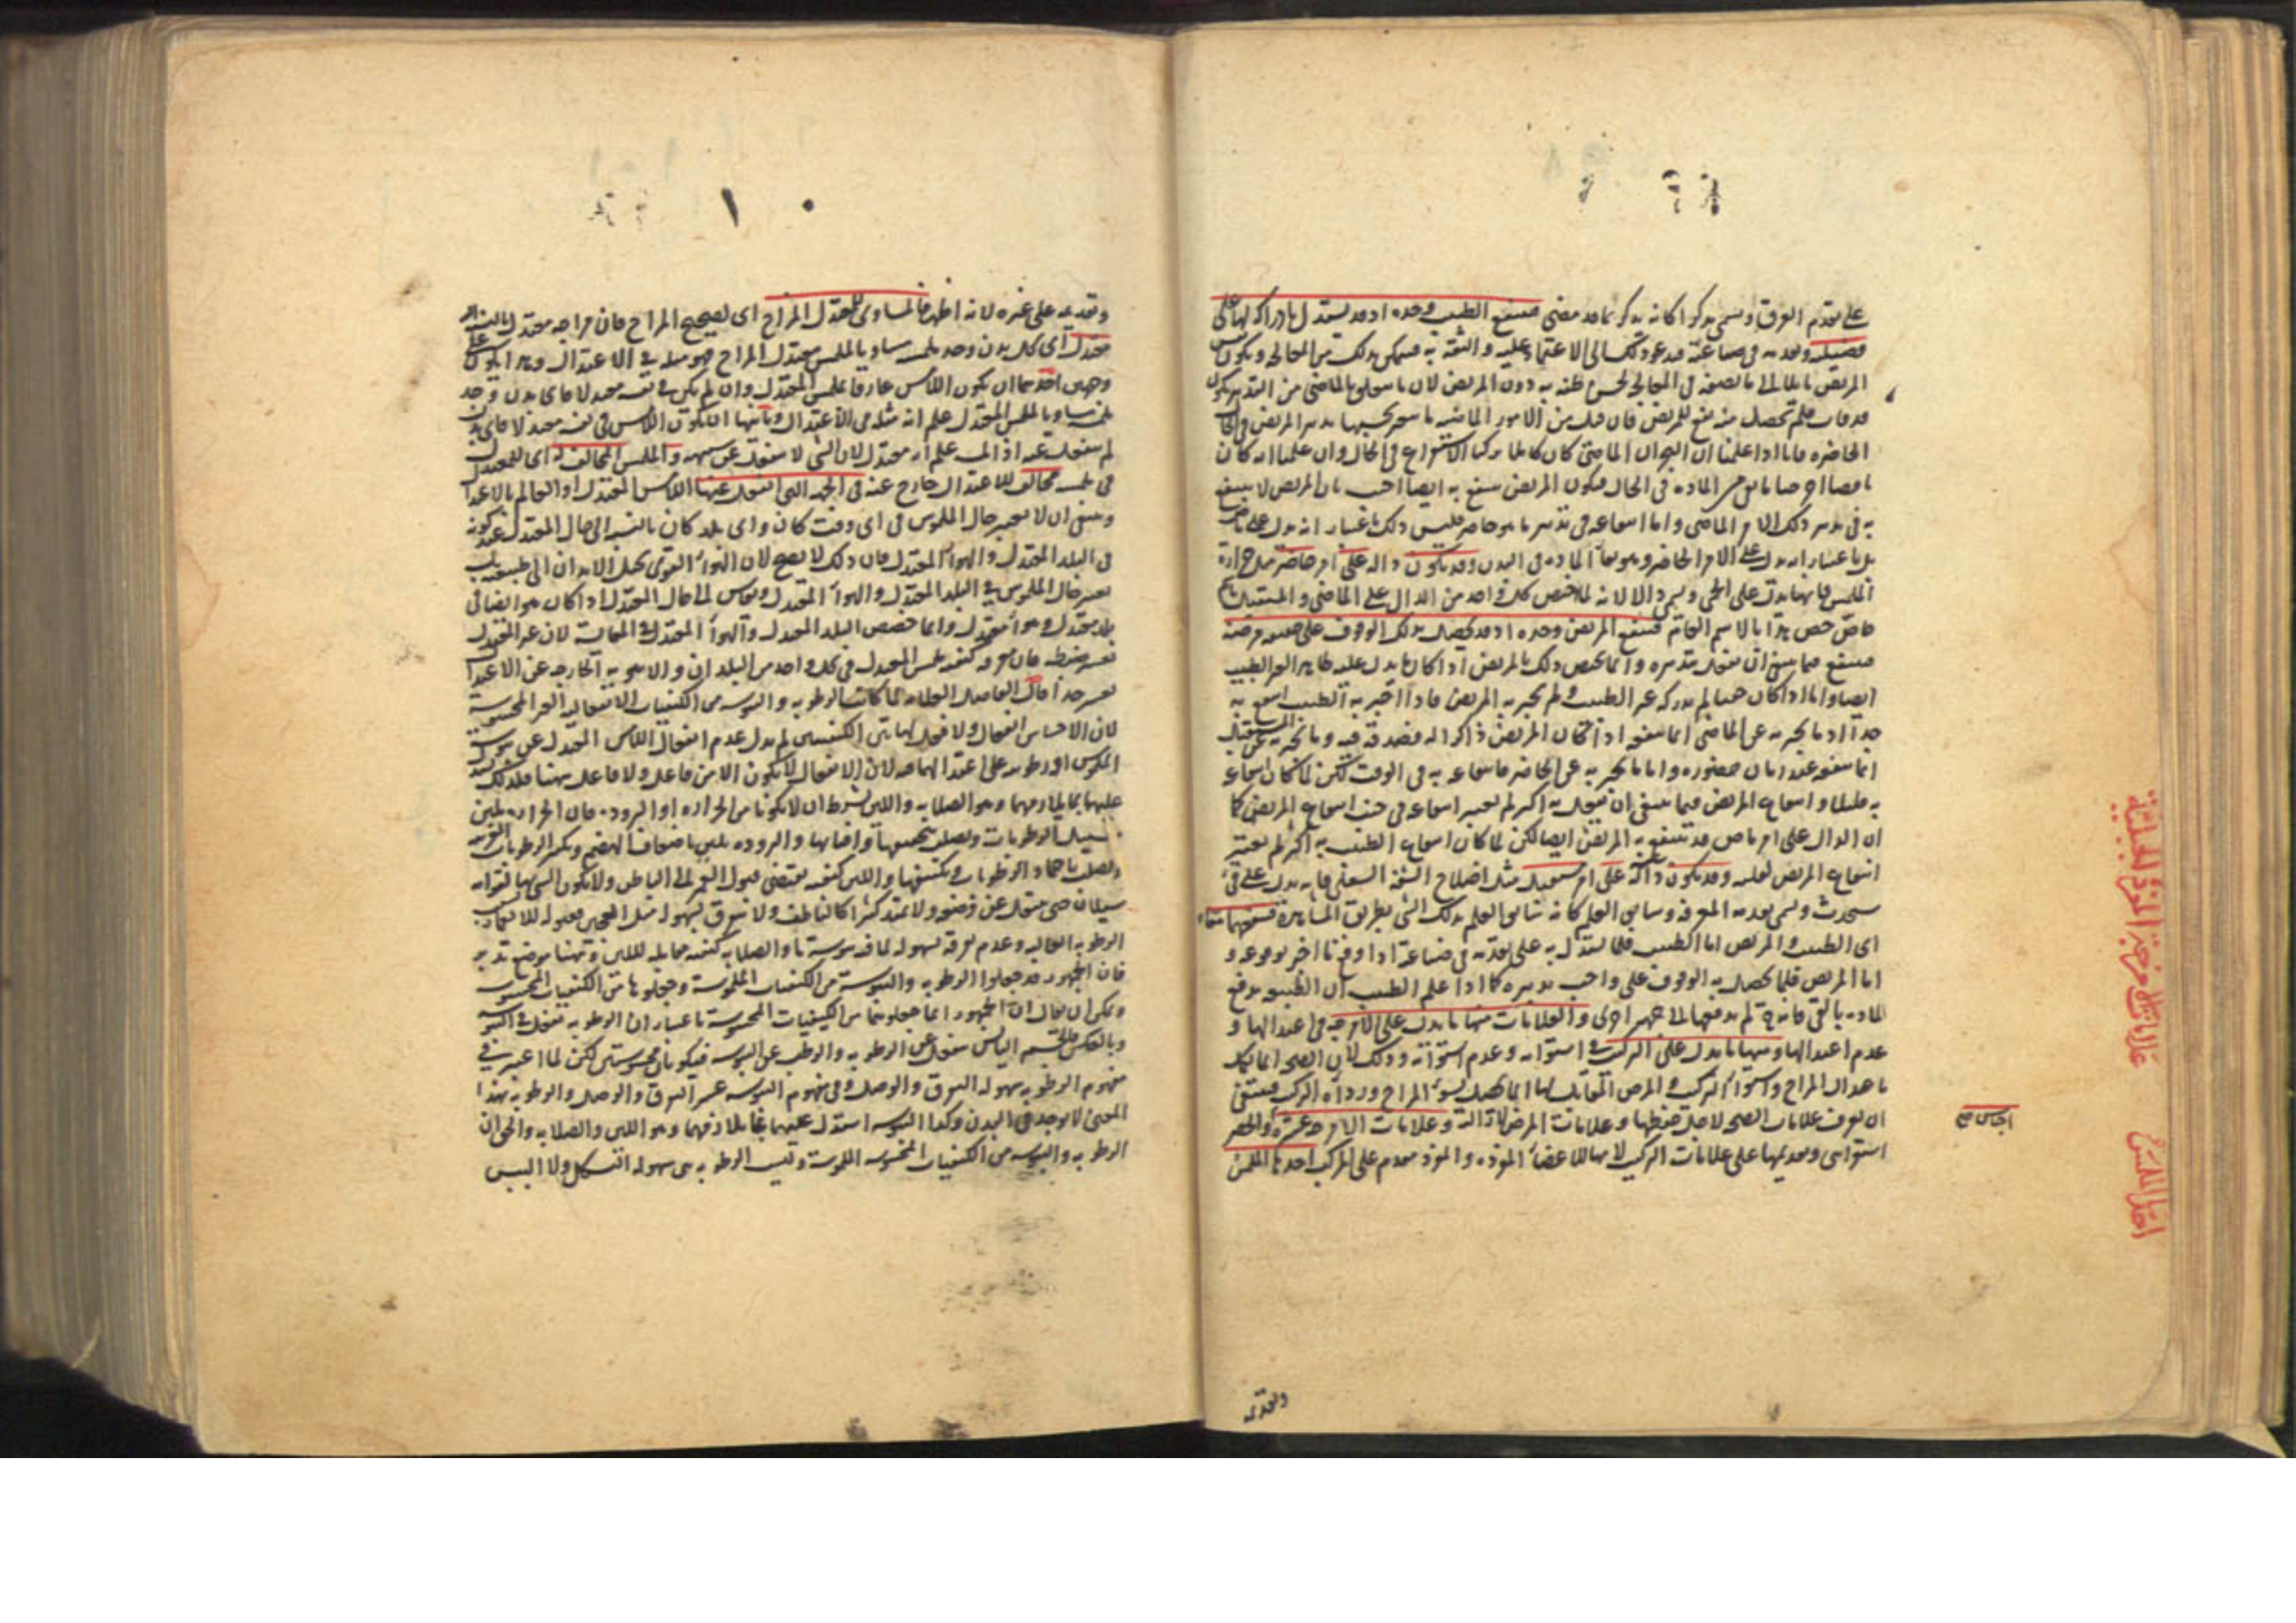 على تقدم العرق ويسمى مذكرا كانه يذكر بما قد مضى فينتفع الطبيب وحده اذ قد يستدل بادراكه لها على
فضيلته وتقدمه في صناعته فيدعو ذلك الى الاعتماد عليه والثقة به فيتمكن بذلك من المعالجة ويكون
المريض لحسن ظنه به دون المريض لان ما سلف بالماضي من التدبير يكون
قد فات فلم تحصل منه نفع للمريض فان قيل من الامور الماضية ما
الحاضرة فانا اذا علمنا ان البحران الماضي كان كاملا تركنا الاستفراغ في الحال وان علمنا انه كان
ناقصا من المادة في الحال فيكون المريض ينتفع به ايضا اجيب بان المريض لا ينتفع
به في تدبير ذلك الامر الماضي واما انتفاعه في تدبير ما هو حاضر فليس ذلك باعتبار انه يدل على ماض
بل باعتبار انه يدل على الامر الحاضر وهو بقاء المادة في البدن وقد تكون دالة على امر حاضر مثل حرارة
الملمس فانها تدل على الحمى ويسمى دالا لانه لما خص كل واحد من الدال على الماضي والمستقبل باسم
خاص خص هذا بالاسم العام فينتفع المريض وحده اذ قد يحصل بذلك الوقوف على حقيقة مرضه
فينتفع فيما ينبغي ان يفعل بتدبيره وانما يختص ذلك بالمريض اذا كان ما يدل عليه ظاهرا لغير الطبيب
ايضا واما اذا كان خفيا لم يدركه غير الطبيب ولم يخبر به المريض فاذا اخبر به الطبيب انتفع به
جدا اذ ما يخبر به عن الماضي انما ينفع اذا كان المريض ذاكرا له فصدقه فيه وما يخبر به عن المستقبل
انما ينفع عند زمان حضوره واما ما يخبر به عن الحاضر فانتفاعه به في الوقت لكن لما كان انتفاعه
به قليلا وانتفاع المريض فيما ينبغي ان يفعل به اكثر لم يعتبر انتفاعه في جنب انتفاع المريض كما
ان الدال على امر ماض قد ينتفع به المريض ايضا لكن لما كان انتفاع الطبيب به اكثر لم يعتبر
انتفاع المريض لقلته وقد تكون دالة على امر مستقبل مثل اختلاج الشفة السفلى فانه يدل على قيء
سيحدث ويسمى تقدمة المعرفة وسابق العلم كانه سابق العلم بذلك الشيء بطريق فينتفعان بها معا
اى الطبيب والمريض اما الطبيب فلما يستدل به على تقدمه في صناعته اذا وقع ما اخبر بوقوعه و
اما المريض فلما يحصل به الوقوف على واجب تدبيره كما اذا علم الطبيب ان الطبيعة تدفع
المادة بالقيء فانه لم يدفعها الى جهة اخرى والعلامات منها ما يدل على الامزجة في اعتدالها و
عدم اعتدالها ومنها ما يدل على التركيب في استوائه وعدم استوائه وذلك لان الصحة انما تكون
باعتدال المزاج واستواء التركيب والمرض المقابل لها انما يحصل بسوء المزاج ورداءة التركيب فينبغي
ان يعرف علامات الصحة لاجل حفظها وعلامات المرض لازالته وعلامات الامزجة عشرة والحصر
استقرائي وتقديمها على علامات التركيب لانها للاعضاء المفردة والمفرد مقدم على المركب احدها الملمس
اجناس
علامات الامزجة
اجناس
وتقديمه
وتقديمه على غيره لانه اظهر فالمساوى لمعتدل المزاج اى لصحيح المزاج فان مزاجه معتدل
معتدل اى كل بدن وجد ملمسه مساويا لملمس معتدل المزاج فهو مثله في الاعتدال وهذا يكون على
وجهين احدهما ان يكون اللامس عارفا بملمس المعتدل وان لم يكن في نفسه معتدلا فاى بدن وجد
ملمسه مساويا لملمس المعتدل علم انه مثله في الاعتدال وثانيها ان يكون اللامس في نفسه معتدلا فاى بدن
لم ينفعل عنه اذا لمسه علم انه معتدل لان الشيء لا ينفعل عن شبيهه والملمس المخالف له اى للمعتدل
في ملمسه مخالف للاعتدال خارج عنه في الجهة التي انفعل عنها اللامس المعتدل او العالم بالاعتدال
وينبغي ان لا يعتبر حال الملموس في اى وقت كان واى بلد كان بالنسبة الى حال المعتدل عند كونه
في البلد المعتدل والهواء المعتدل فان ذلك لا يصح لان الهواء القوى يحيل الابدان الى طبيعته بل
يعتبر حال الملموس في البلد المعتدل والهواء المعتدل ويقاس الى حال المعتدل اذا كان هو ايضا في
بلد معتدل وهواء معتدل وانما خصص البلد المعتدل والهواء المعتدل لان غير المعتدل
يعسر ضبطه فان معرفة كيفية ملمس المعتدل في كل واحد من البلدان والاهوية الخارجة عن الاعتدال
يعسر جدا قال الفاضل العلامة لما كانت الرطوبة واليبوسة من الكيفيات الانفعالية الغير المحسوسة
لان الاحساس انفعال ولا فعل لهاتين الكيفيتين لم يدل عدم انفعال اللامس المعتدل عن يبوسة
الملموس او رطوبته على اعتدالهما فيه لان الانفعال لا يكون الا من فاعل ولا فاعل ههنا فلذلك
عليهما بما يلزمهما وهو الصلابة واللين بشرط ان لا يكونا من الحرارة او البرودة فان الحرارة تلين
بتسييل الرطوبات وتصلب بتجفيفها وافنائها والبرودة تلين باضعاف الهضم وتكثر الرطوبات
وتصلب باجماد الرطوبات وتكثيفها واللين كيفية تقتضي قبول الغمز الى الباطن ولا يكون للشيء بها قوام
سيلان حتى ينتقل عن وضعه ولا يمتد كثيرا كالناطف ولا يتفرق بسهولة مثل العجين فقبوله للانغماز بسبب
الرطوبة الغالبة وعدم تفرقه بسهولة لما فيه يبوسة ما والصلابة كيفية مقابلة للين وههنا موضع تدبر
فان الجمهور قد جعلوا الرطوبة واليبوسة من الكيفيات الملموسة وجعلوها من الكيفيات المحسوسة
ويمكن ان يقال ان الجمهور انما جعلوهما من الكيفيات المحسوسة باعتبار ان الرطوبة تفعل في اليبوسة
وبالعكس اليابس ينفعل عن الرطوبة والرطب عن اليبوسة فيكونان محسوستين لكن لما اعتبر في
مفهوم الرطوبة سهولة التفرق والوصل وفي مفهوم اليبوسة عسر التفرق والوصل والرطوبة بهذا
المعنى لا توجد في البدن وكذا اليبوسة استدل عليهما بما يلازمهما وهو اللين والصلابة والحق ان
الرطوبة واليبوسة من الكيفيات المحسوسة الملموسة وليست الرطوبة هي سهولة التشكل ولا اليبس